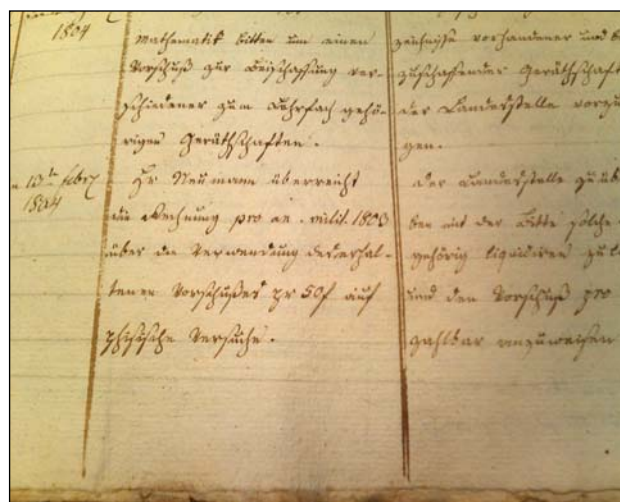 1804
Mathematik bitten um einen
Vorschuß zur Beischaffung ver-
schiedener zum Lehrfach gehö-
rigen Geräthschaften.
13te febr
1804
Hr Neumann überreicht
die Rechnung pro an. milit. 1803
über die Verwendung des erhal-
tenen Vorschußes pr 50f auf
phisische Versuche.
zeichniße vorhandener und
zuschaffender Geräthschaft
der Landesstelle vorzu
gen.
Der Landesstelle zu üb
ben mit der Bitte solche
gehörig liquidiren zu
und den Vorschuß pro
zahlbar anzuweisen